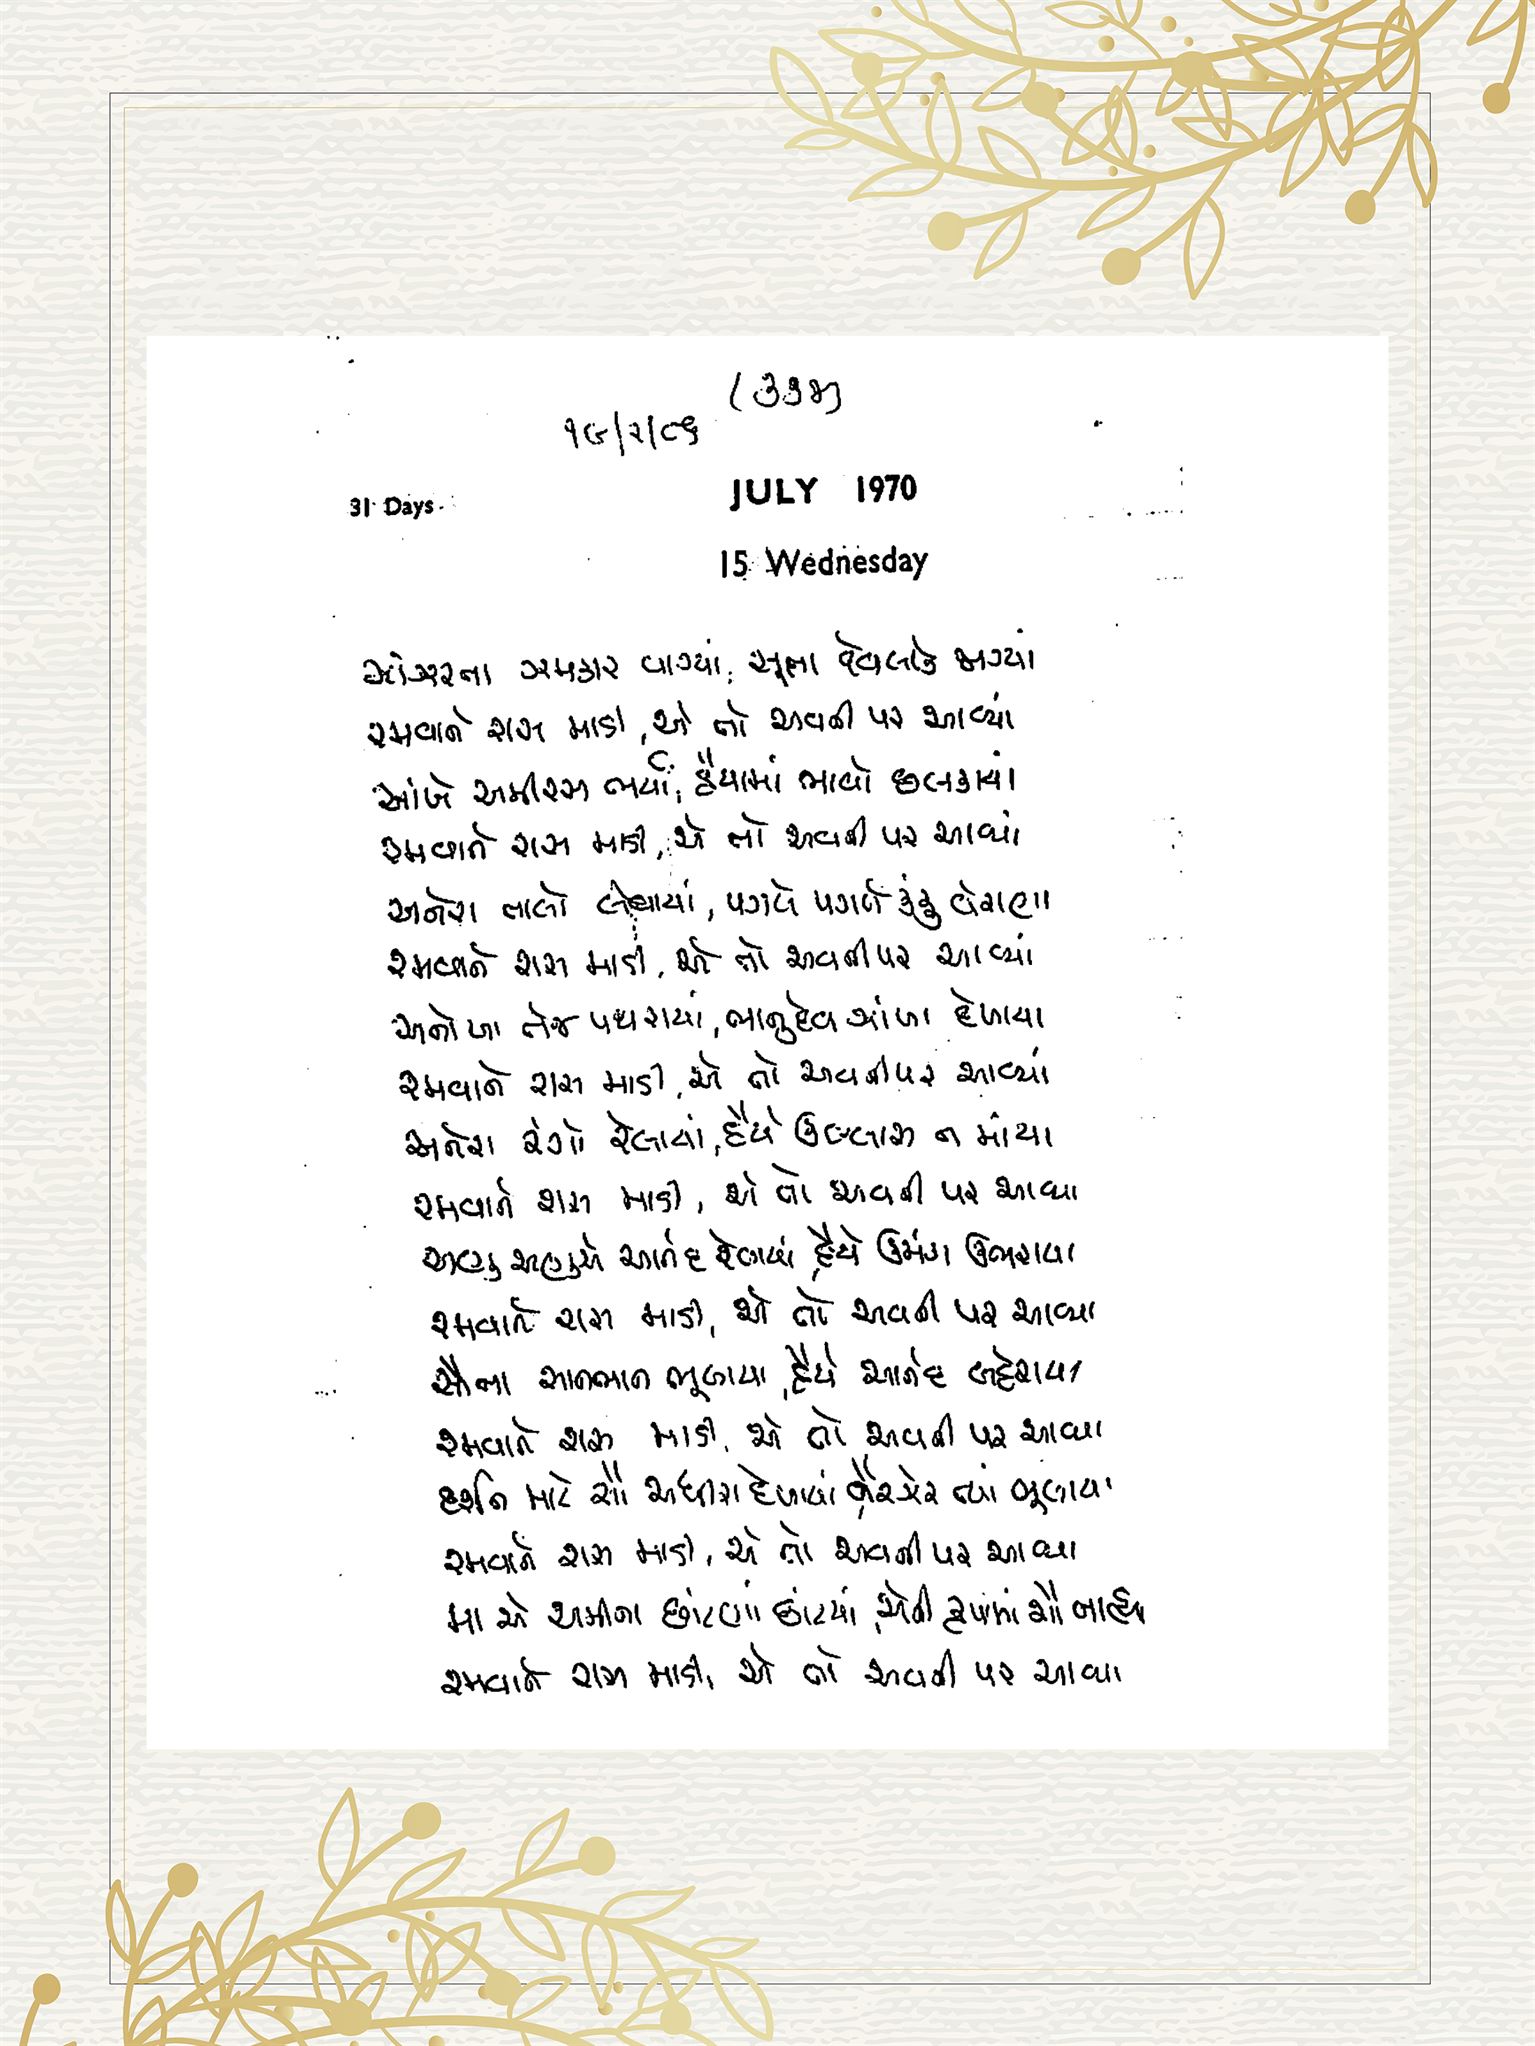 (૩૭૪)
૧૯/૨/૮૬
31 Days
JULY 1970
15 Wednesday
ઝાંઝરના ઝમકાર વાગ્યાં, સૂતા દેવલોકે જાગ્યાં
રમવાને રાસ માડી, એ તો અવની પર આવ્યાં
આંખે અમીરસ ભર્યાં, હૈયામાં ભાવો છલકાયાં
રમવાને રાસ માડી, એ તો અવની પર આવ્યાં
અનેરા તાલો લેવાયાં, પગલે પગલે કુંકુ વેરાણા
રમવાને રાસ માડી, એ તો અવની પર આવ્યાં
અનોખા તેજ પથરાયાં, ભાનુદેવ ઝાંખા દેખાયા
રમવાને રાસ માડી, એ તો અવની પર આવ્યાં
અનેરા રંગો રેલાયાં, હૈયે ઉલ્લાસ ન માંયા
રમવાને રાસ માડી, એ તો અવની પર આવ્યા
અણુ અણુએ આનંદ રેલાયાં, હૈયે ઉમંગ ઉભરાયા
રમવાને રાસ માડી, એ તો અવની પર આવ્યા
સૌના સાનભાન ભૂલાયા, હૈયે આનંદ લહેરાયા
રમવાને રાસ માડી, એ તો અવની પર આવ્યા
દર્શન માટે સૌ અધીરા દેખાયાં, વૈરઝેર ત્યાં ભૂલાયા
રમવાને રાસ માડી, એ તો અવની પર આવ્યા
મા એ અમીના છાંટણાં છાંટયાં, એની કૃપામાં સૌ નાહ્યા
રમવાને રાસ માડી, એ તો અવની પર આવ્યા